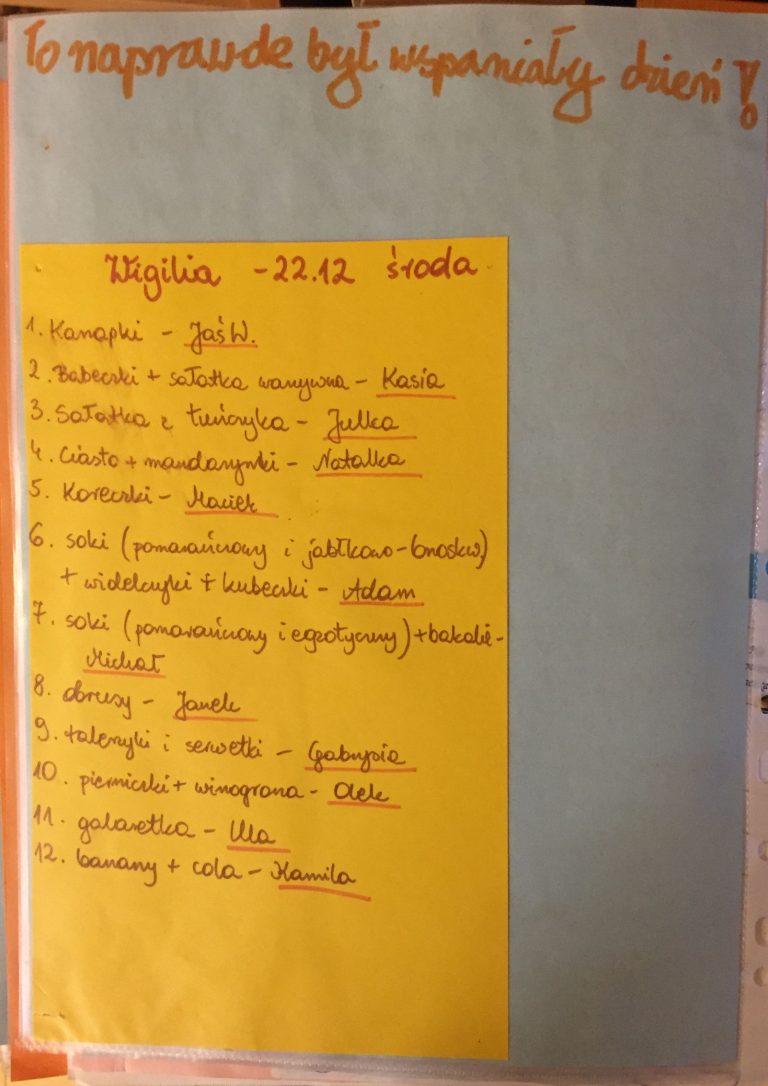 To naprawdę był wspaniały dzień!
Wigilia - 22.12 środa
1. Kanapki - Jaś W.
2. Babeczki + sałatka warzywna - Kasia
3. Sałatka z tuńczyka - Julka
4. Ciasto + mandarynki - Natalka
5. Koreczki - Maciek
6. soki (pomarańczowy i jabłkowo-brzoskw)
+ widelczyki + kubeczki - Adam
7. soki (pomarańczowy i egzotyczny) + bakalie -
Michał
8. obrusy - Janek
9. talerzyki i serwetki - Gabrysia
10. pierniczki + winogrona - Olek
11. galaretka - Ula
12. banany + cola - Kamila